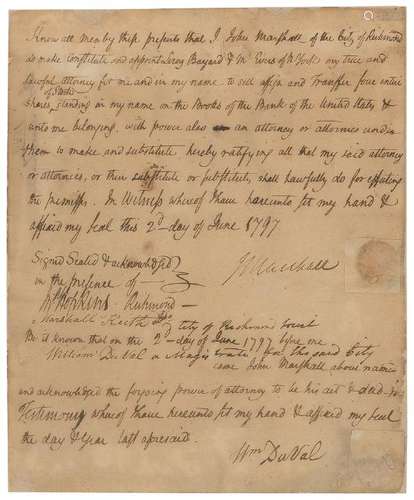 Know all men by these presents that I John Marshall of the City of Richmond
do make constitute and appoint Leroy Bayard & Mc Evers of N York my true and
lawful attorney for me and in my name to sell assign and Transfer four entire
of Stock
shares, standing in my name on the Books of the Bank of the United States &
unto me belonging, with power also an attorney or attornies under
them to make and substitute hereby ratifying all that my said attorney
or attornies, or their substitute or substitutes, shall lawfully do for effecting
the premisses. In Witness whereof I have hereunto set my hand &
affixed my Seal this 2d day of June 1797
Signed Sealed & acknowledged
in the presence of
J Marshall
Hopkins Richmond
Marshall Keith do
City of Richmond to wit
Be it known that on the 2d day of June 1797 before me
William DuVal a Magistrate for the said City
came John Marshall above named
and acknowledged the forgoing power of attorney to be his act & deed In
Testimony whereof I have hereunto set my hand & affixed my Seal
the day & year last aforesaid.
Wm DuVal